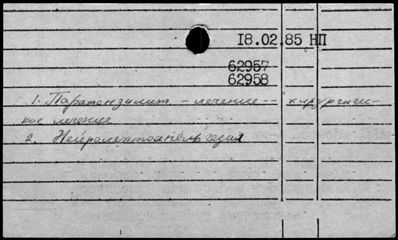 18.02.85 НП
62957
62958
1. Паратонзилит. – лечение – хирургичес-
кое лечение
2. Нейролептоанальгезия